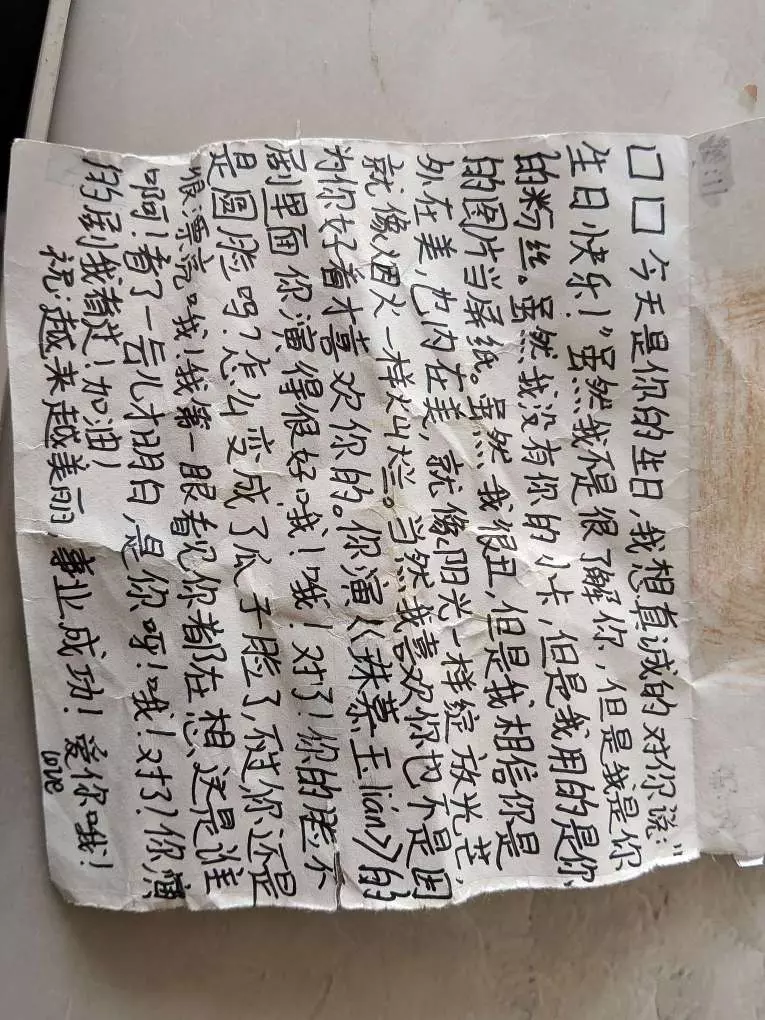 □□今天是你的生日,我想真诚的对你说:"
生日快乐!"虽然我不是很了解你,但是我是你
的粉丝。虽然我没有你的小卡,但是我用的是你
的图片当屏纸。虽然我很丑,但是我相信你是
外在美,也内在美,就像阳光一样绽放光芒,
就像烟火一样灿烂。当然我喜欢你也不是因
为你好看才喜欢你的。你演《珠慕玉lián》的
剧里面你演得很好哦!哦!对了!你的脸不
是圆脸吗?怎么变成了瓜子脸了,你还是
很漂亮哦!我第一眼看见你都在想这是谁
啊!看了一会儿才明白,是你呀!哦!对了!你演
的剧我看过!加油!
祝:越来越美丽,事业成功!爱你哦!
love